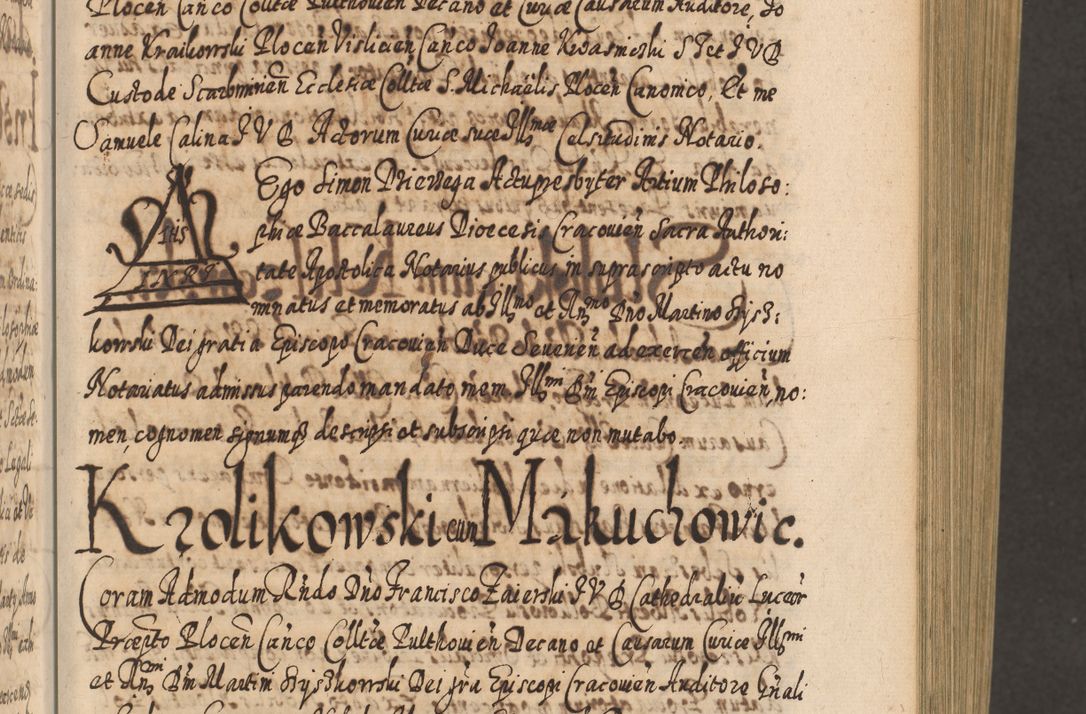 Plocen Canco Colltæ Pulthovien Decano et Curiæ Causarum Auditore, Jo
anne Kraikowski Plocen Vislicien Canco Joanne Kwasnicski S T et J V D
Custode Scarbimirien Ecclesiæ Colltæ S. Michaëlis Plocen Canonico, Et me
Samuele Calina J V D Actorum Curiæ suæ Illmæ Celsitudinis Notario.
Ego Simon Dzierzega Actupresbyter Artium Philoso:
phiæ Baccalaureus Dioecesis Cracovien Sacra Authori:
tate Apostolica Notarius publicus in suprascripto actu no
IHS
INRI
minatus et memoratus ab Illmo et Rmo Dno Martino Szysz:
kowski Dei gratia Episcopo Cracovien Duce Severien ad exercen officium
Notariatus admissus parendo mandato mem Illmi Dni Episcopi Cracovien, no:
men, cognomen signumq descripsi et subscripsi quæ non mutabo.
Krolikowski cum Makuchowic.
Coram Admodum Rndo Dno Francisco Zaierski J V D Cathedraliu Luceor
Præpto Plocen Canco Colltæ Pulthovien Decano et Causarum Curiæ Illmi
et Rmi Dni Martini Szyszkowski Dei gra Episcopi Cracovien Auditore Gnali